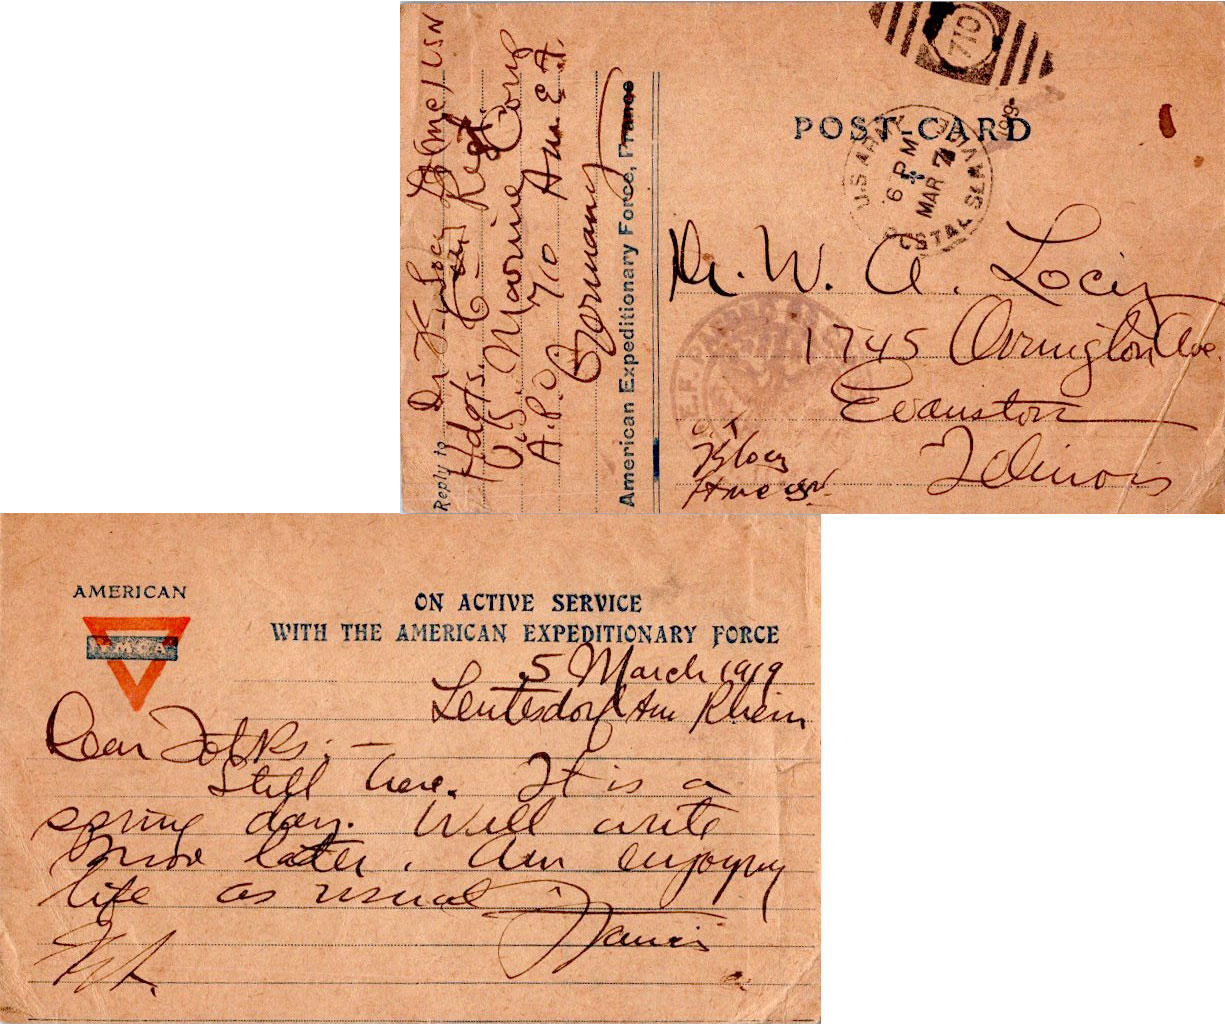 POST-CARD
710
U.S. ARMY POSTAL SERVICE
6 PM
MAR 7
1919
Dr. W. A. Locy
1745 Orrington Ave.
Evanston
Illinois
O.K.
Locy
USN
Reply to Dr. F. Locy USN
Hdqts. 6th Regt.
U.S. Marine Corp
A.P.O. 710 Am. E.F.
Germany
American Expeditionary Force, France
AMERICAN
YMCA
ON ACTIVE SERVICE
WITH THE AMERICAN EXPEDITIONARY FORCE
5 March 1919
Leutesdorf Am Rhein
Dear Folks:—
Still here. It is a
spring day. Will write
more later. Am enjoyng
life as usual
Francis